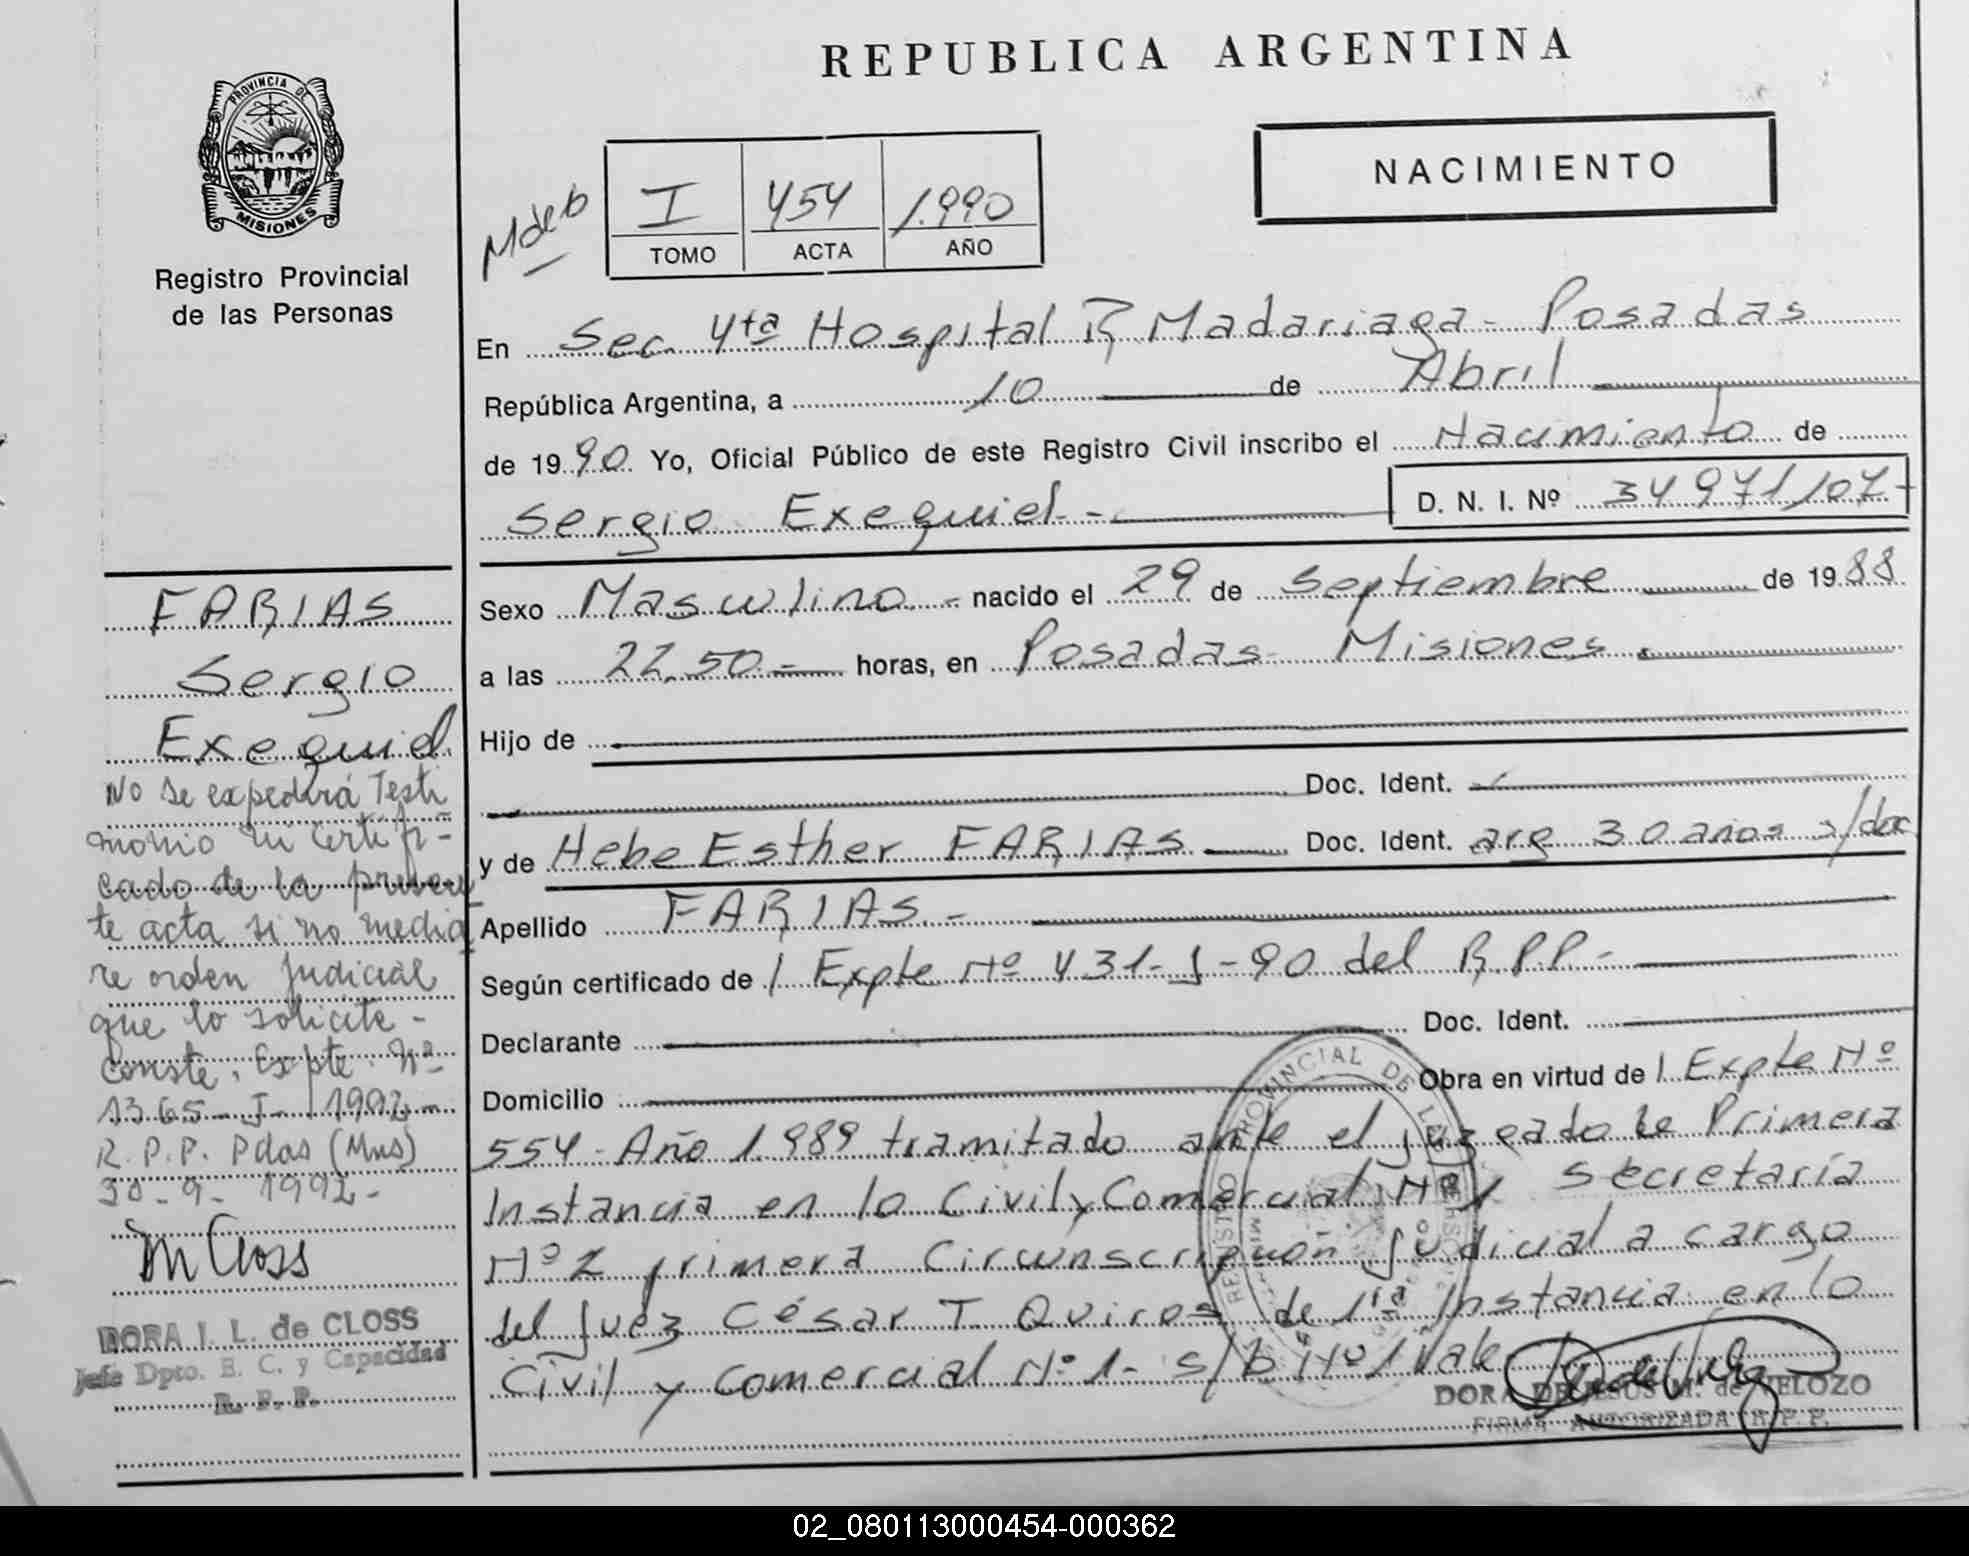 REPUBLICA ARGENTINA
PROVINCIA DE
MISIONES
Registro Provincial
de las Personas
I 454 1.990
TOMO ACTA AÑO
NACIMIENTO
En Sec. 4ta Hospital R. Madariaga - Posadas
República Argentina, a 10 de Abril
de 1990 Yo, Oficial Público de este Registro Civil inscribo el Nacimiento de
Sergio Exequiel - D. N. I. Nº 34 971 107-
Sexo Masculino - nacido el 29 de Septiembre de 1988
a las 22,50 - horas, en Posadas Misiones.
Hijo de
Doc. Ident.
y de Hebe Esther FARIAS Doc. Ident. arg 30 años s/doc
Apellido FARIAS. -
Según certificado de / Expte Nº 431-J-90 del R.P.P. -
Declarante Doc. Ident.
Domicilio Obra en virtud de / Expte Nº
554 - Año 1.989 tramitado ante el Juzgado de Primera
Instancia en lo Civil y Comercial Nº 1 Secretaría
Nº 2 primera Circunscripción Judicial a cargo
del Juez César T. Quiros de 1ra Instancia en lo
Civil y Comercial Nº 1- s/b Nº 1 Vale
DORA DE JESUS M. de VELOZO
FIRMA AUTORIZADA R. P. P.
REGISTRO PROVINCIAL DE LAS PERSONAS
FARIAS
Sergio
Exequiel
No se expedirá Testi
monio ni Certifi-
cado de la presen
te acta si no media
re orden Judicial
que lo solicite -
Conste, Expte. Nº
1365 - J - 1992 -
R.P.P. Pdas (Mns)
30 - 9 - 1992 -
M Closs
DORA I. L. de CLOSS
Jefe Dpto. E. C. y Capacidad
R. P. P.
02_080113000454-000362